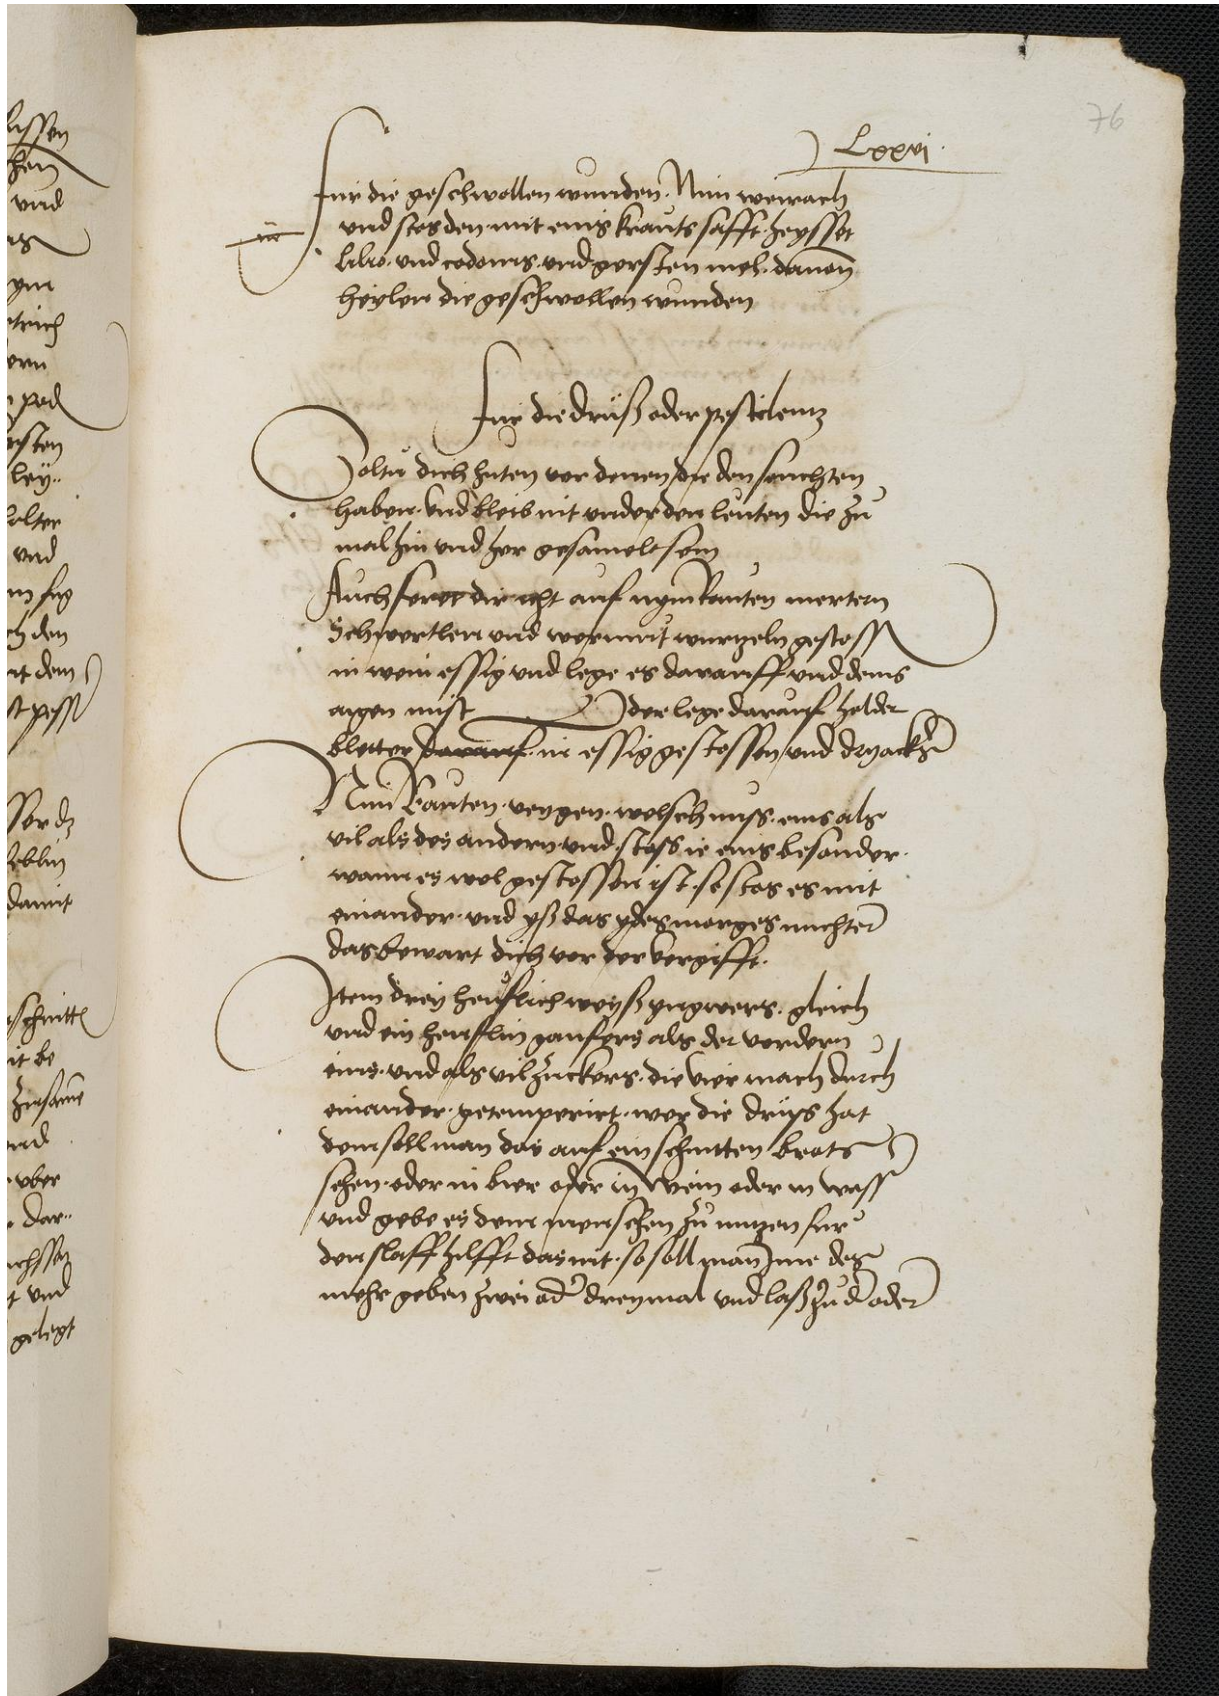 76
Lxxvi
Für die geschwollen wunden. Nim weirach
und stos den mit eins krauts safft heysset
lilio. und codoms. und gersten mel. dauon
heylen die geschwollen wunden
Für die drüß oder pestilentz
Soltu dich huten vor denen die den seuchten
haben. und bleib nit under den leuten die zu
mal hin und her gesamelt sein
Auch fert dir icht auf nym Rauten mertern
Schwertlen und wermut wurtzeln gestoss
in wein essig und lege es darauff und deins
aigen mist Oder lege darauf holder
bletter darauf in essig gestossen und dryacks
Nim Rauten. veygen. welsch nuss. eins als
vil als des andern. und stoss ie eins besonder.
wann es wol gestossen ist. so stos es mit
einander. und yß das ydes morges nuchter
das bewart dich vor der vergifft.
Item drey heuflich weyß yngwers. gleich
und ein heuflin ganfers als der vordern
eins. und als vil zuckers. die vier mach durch
einander. getemperirt. wer die drüss hat
dem soll man das auf ein schnitten brots
sehen. oder in bier oder in wein oder in wass
und gebe es dem menschen zu nutzen fur
den slaff hilfft das nit. so soll man Ime des
mehr geben zwei od dreymal und laß zu d oder